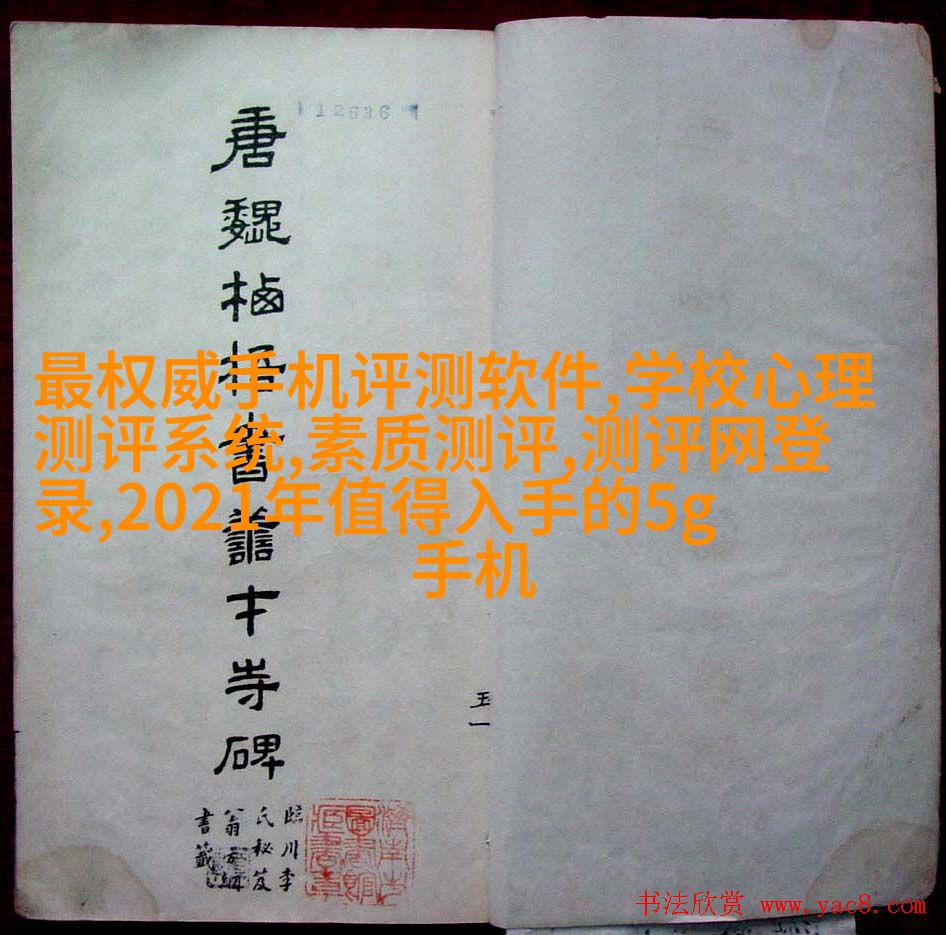 12636
唐魏栖梧書善才寺碑
最权威手机评测软件,学校心理
测评系统,素质测评,测评网登
录,2021年值得入手的5g
手机
五一
臨川李
氏秘笈
翁方綱
書籤
书法欣赏 www.yac8.com